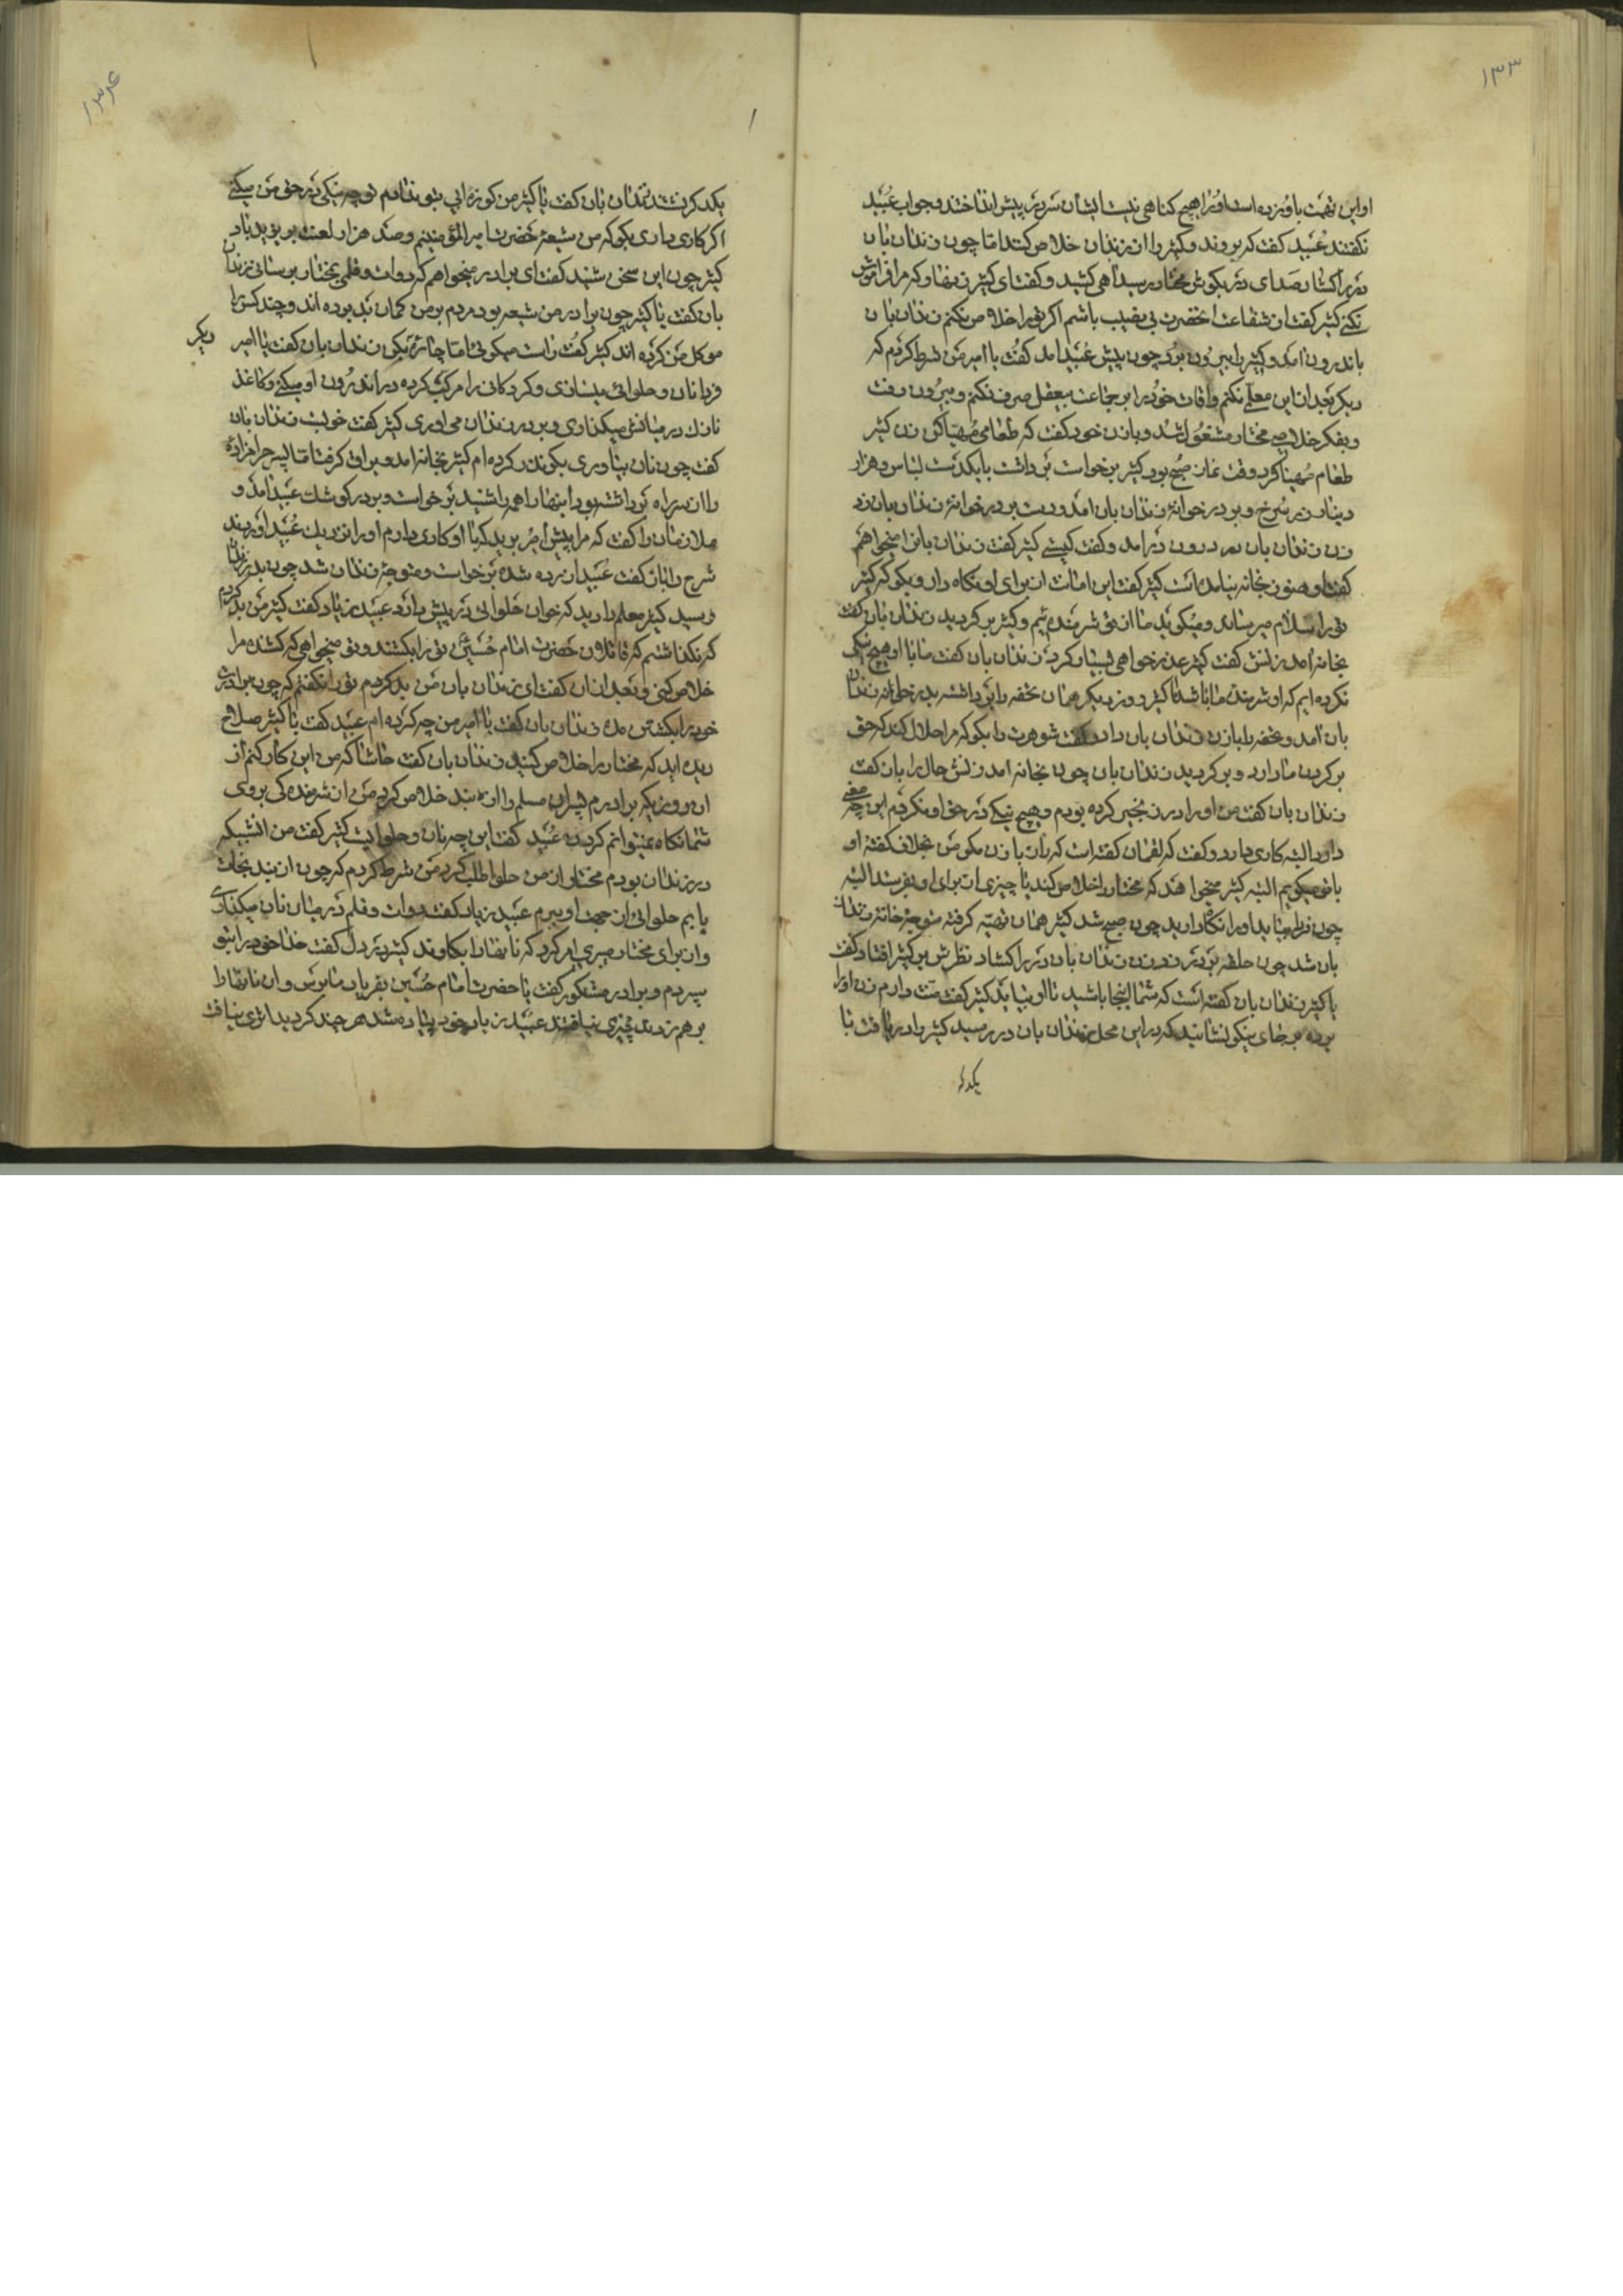 ۱۳۳
او این تهمت باو زده است او را هیچ کناهی نیست ایشان سر در پیش انداختند و جواب عبید
نکفتند عبید کفت که بروند و کثیر را از زندان خلاص کنند اما چون زندان بان
در را کشاد صدای در بکوش مختار رسید آهی کشید و کفت ای کثیر زنهار که مرا فراموش
نکنی کثیر کفت از شفاعت حضرت بی نصیب باشم اکر ترا خلاص نکنم زندان بان
باندرون آمد و کثیر را بیرون برد چون پیش عبید آمد کفت یا امیر من شرط کردم که
دیکر بعد ازین معلمی نکنم و اوقات خود را بر جماعت بیعقل صرف نکنم و بیرون رفت
و بفکر خلاصی مختار مشغول شد و بازن خود کفت که طعامی مهیا کن زن کثیر
طعام مهیا کرد وقت نماز صبح بود کثیر برخواست برداشت با یکدست لباس و هزار
دینار زر سرخ و بود در خوانهٔ زندان بان آمد و دست بر در خوانهٔ زندان بان زد
زن زندان بان در درون در آمد و کفت کیستی کثیر کفت زندان بانرا میخواهم
کفت او هنوز بخانه نیامده است کثیر کفت این امانت از برای او نکاه دار و بکو که کثیر
ترا سلام میرساند و میکوید ما از تو شرمنده ایم و کثیر بر کردید زندان بان کفت
بخانه آمد زنش کفت کثیر عذر خواهی بسیار کرد زندان بان کفت ما با او هیچ نیکی
نکرده ایم که او شرمنده ما باشد تا کثیر روز دیکر همان تحفه را برداشته بدر خوانه زندان
بان آمد و تحفه را بازن زندان بان داد و کفت شوهرت را بکو که مرا حلال کند که حق
بر کردن ما دارد و بر کردید زندان بان چون بخانه آمد زنش حال را بان کفت
زندان بان کفت من او را در زنجیر کرده بودم و هیچ نیکی در حق او نکردم این چه معنی
دارد البته کاری دارد و کفت که لقمان کفته است که راز با زن مکو من بخلاف کفته او
با تو میکویم البته کثیر میخواهد که مختار را خلاص کند یا چیزی از برای او بفرستد البته
چون فردا بیاید او را نکاه دارید چون صبح شد کثیر همان تهیه کرفته متوجه خانهٔ زندان
بان شد چون حلقه بر در زد زن زندان بان در را کشاد نظرش بر کثیر افتاد کفت
یا کثیر زندان بان کفته است که شما اینجا باشید تا او بیاید کثیر کفت منت دارم زن او را
برده بر جای نیکو نشانید که در این محل زندان بان در رسید کثیر را دریافت با
یکدکر
۱۳۴
یکدکر نشستند زندان بان کفت یا کثیر من کوزه آبی بتو ندادم تو چه نیکی در حق من میکنی
اکر کاری داری بکو که من شیعهٔ حضرت امیر المؤمنینم و صد هزار لعنت بر یزید باد
کثیر چون این سخن شنید کفت ای برادر میخواهم که دوات و قلمی بمختار برسانی زندان
بان کفت یا کثیر چون برادر من شیعه بود مردم بر من کمان بد برده اند و چند کس را
موکل من کرده اند کثیر کفت راست میکوئی اما چاره بکن زندان بان کفت یا امیر دیکر
فردا نان و حلوائی میسازی و کردکانی را مرکب کرده در اندرون او میکنی و کاغذ
نازک در میانش میکذاری و بدر زندان می آوری کثیر کفت خوبست زندان بان
کفت چون نان بیاوری بکو نذر کرده ام کثیر بخانه آمد و یراق کرفت اما پسر حرامزادهٔ
را از سر راه برداشته بود اینها را همه را شنید برخواست و بدر کوشک عبید آمد و
ملازمان را کفت که مرا پیش امیر برید که با او کاری دارم او را نزدیک عبید آوردند
شرح را باز کفت عبید آزرده شده برخواست و متوجه زندان شد چون بدر زندان
رسید کثیر معلم را دید که خوان حلوائی در پیش دارد عبید زیاد کفت کثیر من بد کردم
که نکذاشتم که قاتلان حضرت امام حسین ترا بکشند و تو میخواهی که کشنده مرا
خلاص کنی و بعد از آن کفت ای زندان بان من بد کردم ترا نکفتم که چون برادری
خود را بکشتن مده زندان بان کفت یا امیر من چه کرده ام عبید کفت با کثیر صلاح
دیده اید که مختار را خلاص کنید زندان بان کفت حاشا که من این کار کنم از
آن روز که برادرم پسران مسلم را از بند خلاص کرد من از شرمندکی بروی
شما نکاه نمیتوانم کردن عبید کفت این چه نان و حلوایست کثیر کفت من آنشب که
در زندان بودم مختار از من حلوا طلب کرد من شرط کردم که چون از بند نجات
یابم حلوائی از جهت او ببرم عبید زیاد کفت دوات و قلم در میان نان میکذاری
و از برای مختار میبری امر کرد که نانها را بکاوند کثیر در دل کفت خدا خود را بتو
سپردم و برادر مشکور کفت یا حضرت امام حسین بفریاد ما برس و آن نانها را
بر هم زدند چیزی نیافتند عبید زیاد خود پیاده شد هر چند کردید اثری نیافت